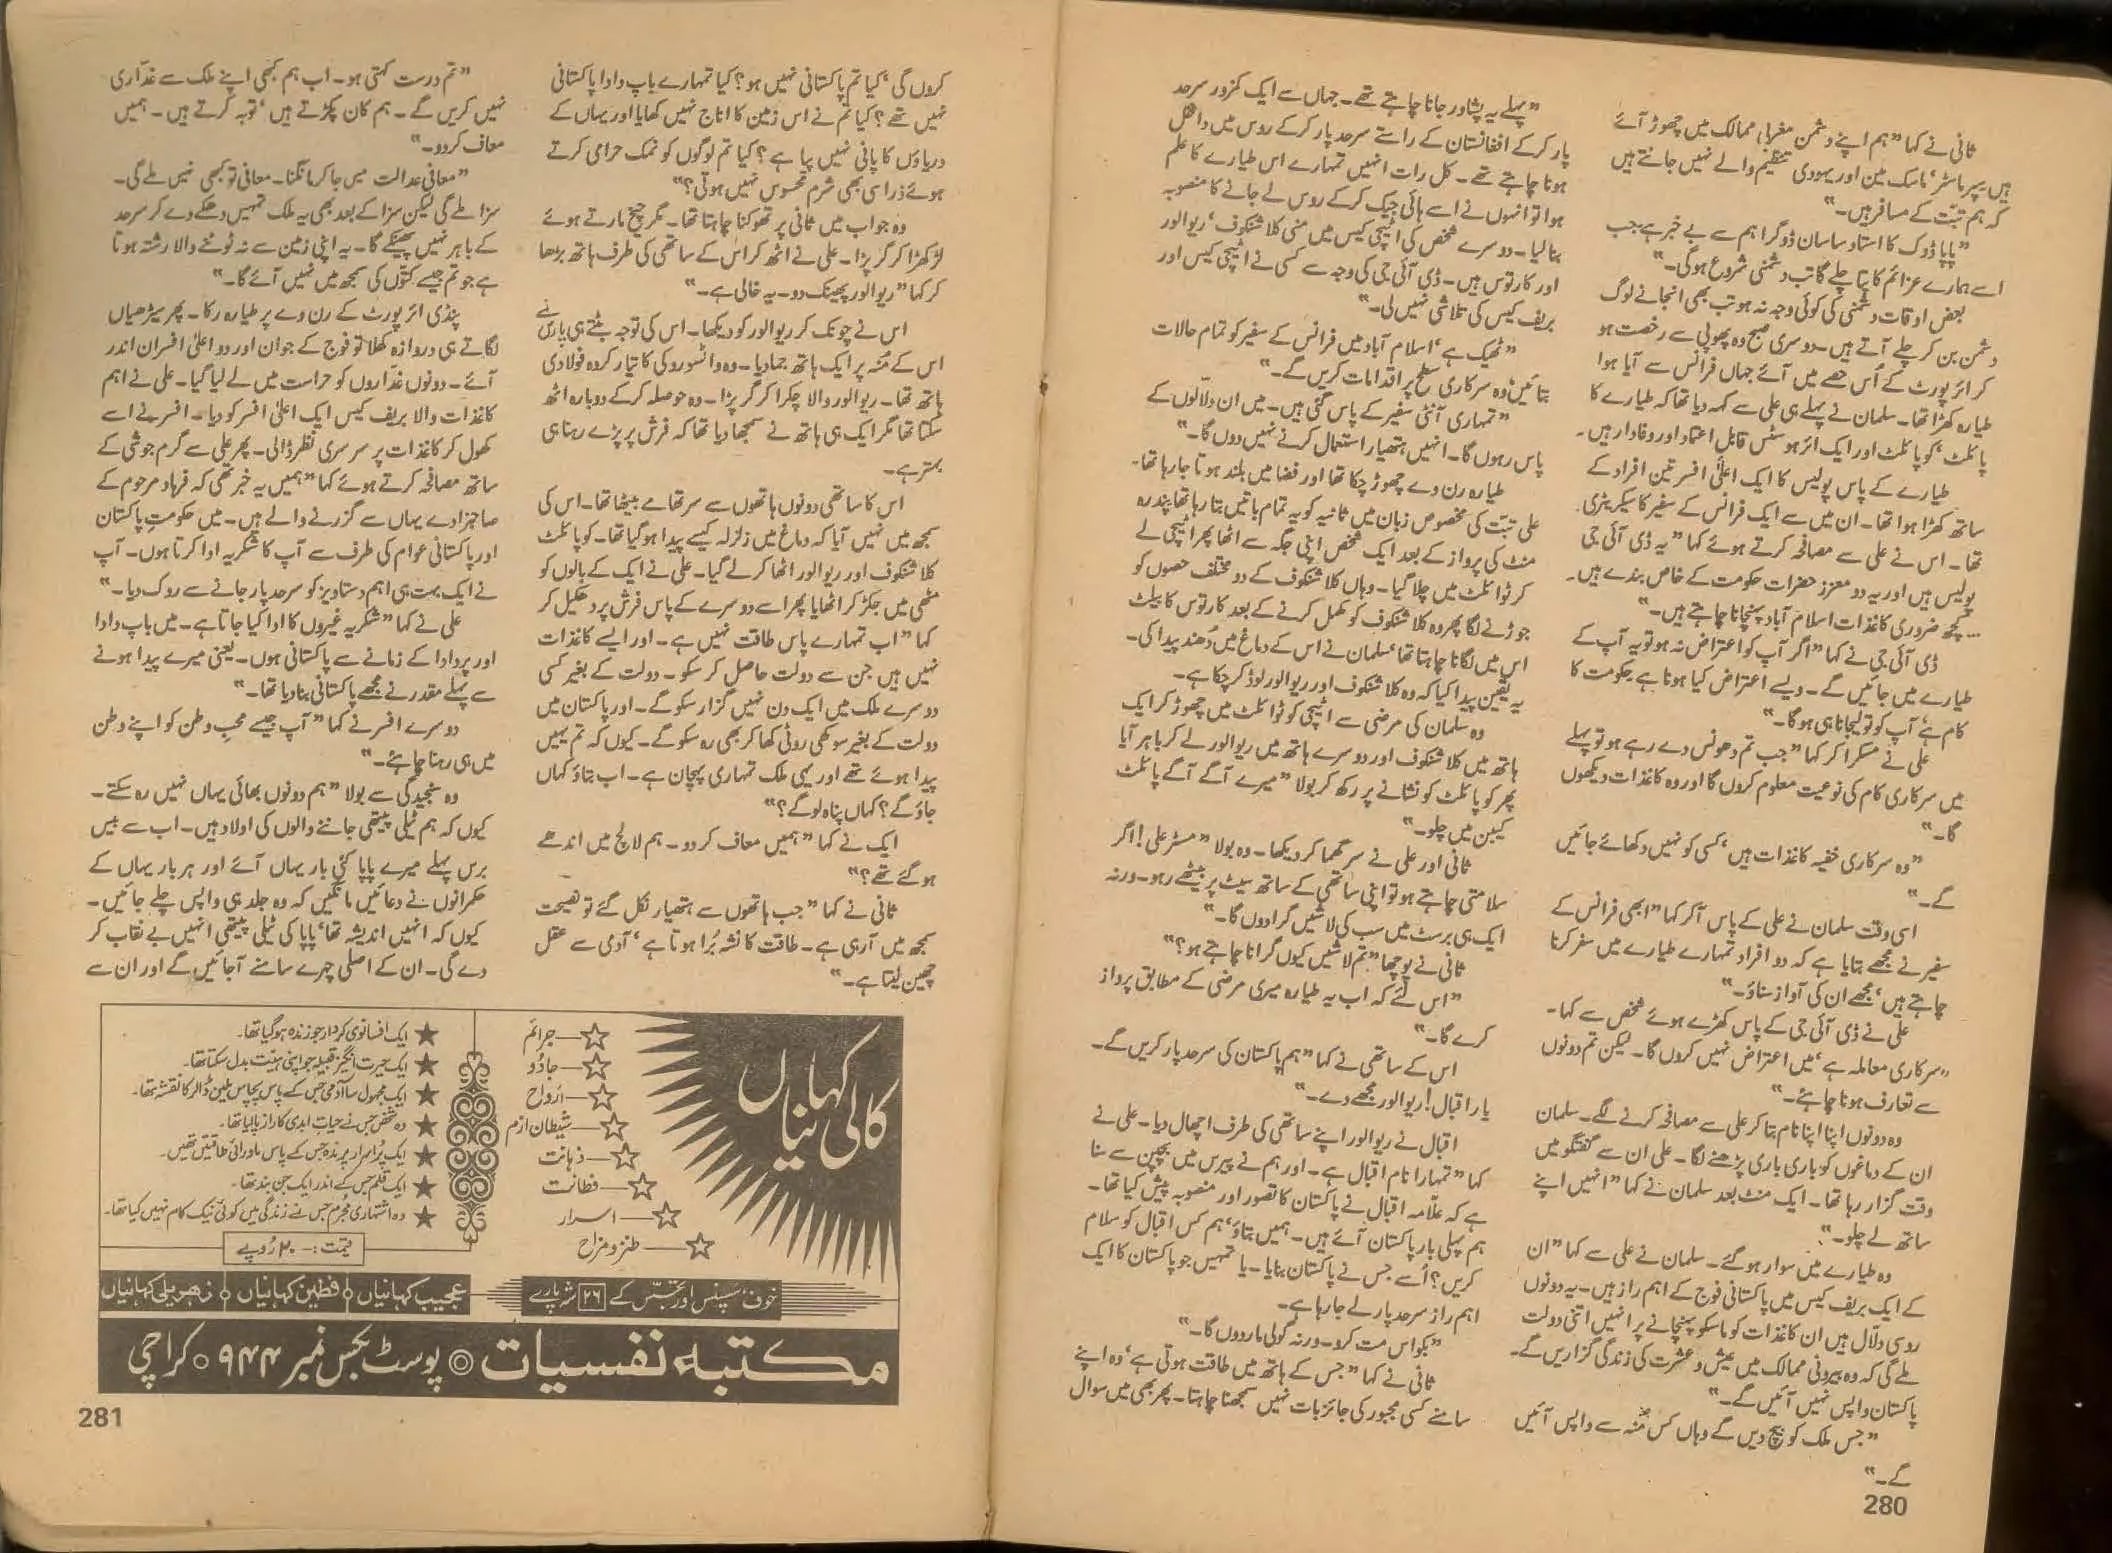 ثانی نے کہا ”ہم اپنے دشمن مغربی ممالک میں چھوڑ آئے
ہیں سپر ماسٹر‘ ماسک مین اور یہودی تنظیم والے نہیں جانتے ہیں
کہ ہم تبت کے مسافر ہیں۔“
”پاپا ڈوک کا استاد ساسان ڈوگرا ہم سے بے خبر ہے جب
اسے ہمارے عزائم کا پتا چلے گا تب دشمنی شروع ہوگی۔“
بعض اوقات دشمنی کی کوئی وجہ نہ ہو تب بھی انجانے لوگ
دشمن بن کر چلے آتے ہیں۔ دوسری صبح وہ پھوپی سے رخصت ہو
کر ائرپورٹ کے اُس حصے میں آئے جہاں فرانس سے آیا ہوا
طیارہ کھڑا تھا۔ سلمان نے پہلے ہی علی سے کہہ دیا تھا کہ طیارے کا
پائلٹ‘ کو پائلٹ اور ایک ائر ہوسٹس قابل اعتماد اور وفادار ہیں۔
طیارے کے پاس پولیس کا ایک اعلیٰ افسر تین افراد کے
ساتھ کھڑا ہوا تھا۔ ان میں سے ایک فرانس کے سفیر کا سیکریٹری
تھا۔ اس نے علی سے مصافحہ کرتے ہوئے کہا ”یہ ڈی آئی جی
پولیس ہیں اور یہ دو معزز حضرات حکومت کے خاص بندے ہیں۔
... کچھ ضروری کاغذات اسلام آباد پہنچانا چاہتے ہیں۔“
ڈی آئی جی نے کہا ”اگر آپ کو اعتراض نہ ہو تو یہ آپ کے
طیارے میں جائیں گے۔ ویسے اعتراض کیا ہونا ہے حکومت کا
کام ہے‘ آپ کو تو لیجانا ہی ہوگا۔“
علی نے مسکرا کر کہا ”جب تم دھونس دے رہے ہو تو پہلے
میں سرکاری کام کی نوعیت معلوم کروں گا اور وہ کاغذات دیکھوں
گا۔“
”وہ سرکاری خفیہ کاغذات ہیں‘ کسی کو نہیں دکھائے جائیں
گے۔“
اسی وقت سلمان نے علی کے پاس آ کر کہا ”ابھی فرانس کے
سفیر نے مجھے بتایا ہے کہ دو افراد تمہارے طیارے میں سفر کرنا
چاہتے ہیں‘ مجھے ان کی آواز سناؤ۔“
علی نے ڈی آئی جی کے پاس کھڑے ہوئے شخص سے کہا۔
”سرکاری معاملہ ہے‘ میں اعتراض نہیں کروں گا۔ لیکن تم دونوں
سے تعارف ہونا چاہئے۔“
وہ دونوں اپنا اپنا نام بتا کر علی سے مصافحہ کرنے لگے۔ سلمان
ان کے دماغوں کو باری باری پڑھنے لگا۔ علی ان سے گفتگو میں
وقت گزار رہا تھا۔ ایک منٹ بعد سلمان نے کہا ”انہیں اپنے
ساتھ لے چلو۔“
وہ طیارے میں سوار ہو گئے۔ سلمان نے علی سے کہا ”ان
کے ایک بریف کیس میں پاکستانی فوج کے اہم راز ہیں۔ یہ دونوں
روسی دلال ہیں ان کاغذات کو ماسکو پہنچانے پر انہیں اتنی دولت
ملے گی کہ وہ بیرونی ممالک میں عیش و عشرت کی زندگی گزاریں گے۔
پاکستان واپس نہیں آئیں گے۔“
”جس ملک کو بیچ دیں گے وہاں کس مُنہ سے واپس آئیں
گے۔“
280
”پہلے یہ پشاور جانا چاہتے تھے۔ جہاں سے ایک کمزور سرحد
پار کر کے افغانستان کے راستے سرحد پار کر کے روس میں داخل
ہونا چاہتے تھے۔ کل رات انہیں تمہارے اس طیارے کا علم
ہوا تو انہوں نے اسے ہائی جیک کر کے روس لے جانے کا منصوبہ
بنا لیا۔ دوسرے شخص کی اٹیچی کیس میں منی کلاشنکوف‘ ریوالور
اور کارتوس ہیں۔ ڈی آئی جی کی وجہ سے کسی نے اٹیچی کیس اور
بریف کیس کی تلاشی نہیں لی۔“
”ٹھیک ہے‘ اسلام آباد میں فرانس کے سفیر کو تمام حالات
بتائیں‘ وہ سرکاری سطح پر اقدامات کریں گے۔“
”تمہاری آنٹی سفیر کے پاس گئی ہیں۔ میں ان دلالوں کے
پاس رہوں گا۔ انہیں ہتھیار استعمال کرنے نہیں دوں گا۔“
طیارہ رن وے چھوڑ چکا تھا اور فضا میں بلند ہوتا جا رہا تھا۔
علی تبت کی مخصوص زبان میں ثانیہ کو یہ تمام باتیں بتا رہا تھا پندرہ
منٹ کی پرواز کے بعد ایک شخص اپنی جگہ سے اٹھا پھر اٹیچی لے
کر ٹوائلٹ میں چلا گیا۔ وہاں کلاشنکوف کے دو مختلف حصوں کو
جوڑنے لگا پھر وہ کلاشنکوف کو مکمل کرنے کے بعد کارتوس کا بیلٹ
اس میں لگانا چاہتا تھا‘ سلمان نے اس کے دماغ میں دُھند پیدا کی۔
یہ یقین پیدا کیا کہ وہ کلاشنکوف اور ریوالور لوڈ کر چکا ہے۔
وہ سلمان کی مرضی سے اٹیچی کو ٹوائلٹ میں چھوڑ کر ایک
ہاتھ میں کلاشنکوف اور دوسرے ہاتھ میں ریوالور لے کر باہر آیا
پھر کو پائلٹ کو نشانے پر رکھ کر بولا ”میرے آگے آگے پائلٹ
کیبن میں چلو۔“
ثانی اور علی نے سر گھما کر دیکھا۔ وہ بولا ”مسٹر علی! اگر
سلامتی چاہتے ہو تو اپنی ساتھی کے ساتھ سیٹ پر بیٹھے رہو۔ ورنہ
ایک ہی برسٹ میں سب کی لاشیں گرا دوں گا۔“
ثانی نے پوچھا ”تم لاشیں کیوں گرانا چاہتے ہو؟“
”اس لئے کہ اب یہ طیارہ میری مرضی کے مطابق پرواز
کرے گا۔“
اس کے ساتھی نے کہا ”ہم پاکستان کی سرحد پار کریں گے۔
یار اقبال! ریوالور مجھے دے۔“
اقبال نے ریوالور اپنے ساتھی کی طرف اچھال دیا۔ علی نے
کہا ”تمہارا نام اقبال ہے۔ اور ہم نے پیرس میں بچپن سے سنا
ہے کہ علامہ اقبال نے پاکستان کا تصور اور منصوبہ پیش کیا تھا۔
ہم پہلی بار پاکستان آئے ہیں۔ ہمیں بتاؤ‘ ہم کس اقبال کو سلام
کریں؟ اُسے جس نے پاکستان بنایا۔ یا تمہیں جو پاکستان کا ایک
اہم راز سرحد پار لے جا رہا ہے۔
”بکواس مت کرو۔ ورنہ گولی مار دوں گا۔“
ثانی نے کہا ”جس کے ہاتھ میں طاقت ہوتی ہے‘ وہ اپنے
سامنے کسی مجبور کی جائز بات نہیں سمجھنا چاہتا۔ پھر بھی میں سوال
کروں گی‘ کیا تم پاکستانی نہیں ہو؟ کیا تمہارے باپ دادا پاکستانی
نہیں تھے؟ کیا تم نے اس زمین کا اناج نہیں کھایا اور یہاں کے
دریاؤں کا پانی نہیں پیا ہے؟ کیا تم لوگوں کو نمک حرامی کرتے
ہوئے ذرا سی بھی شرم محسوس نہیں ہوتی؟“
وہ جواب میں ثانی پر تھوکنا چاہتا تھا۔ مگر چیخ مارتے ہوئے
لڑکھڑا کر گر پڑا۔ علی نے اٹھ کر اس کے ساتھی کی طرف ہاتھ بڑھا
کر کہا ”ریوالور پھینک دو۔ یہ خالی ہے۔“
اس نے چونک کر ریوالور کو دیکھا۔ اس کی توجہ ہٹتے ہی پارس نے
اس کے مُنہ پر ایک ہاتھ جما دیا۔ وہ وانسوروکی کا تیار کردہ فولادی
ہاتھ تھا۔ ریوالور والا چکرا کر گر پڑا۔ وہ حوصلہ کر کے دوبارہ اٹھ
سکتا تھا مگر ایک ہی ہاتھ نے سمجھا دیا تھا کہ فرش پر پڑے رہنا ہی
بہتر ہے۔
اس کا ساتھی دونوں ہاتھوں سے سر تھامے بیٹھا تھا۔ اس کی
سمجھ میں نہیں آیا کہ دماغ میں زلزلہ کیسے پیدا ہو گیا تھا۔ کو پائلٹ
کلاشنکوف اور ریوالور اٹھا کر لے گیا۔ علی نے ایک کے بالوں کو
مٹھی میں جکڑ کر اٹھایا پھر اسے دوسرے کے پاس فرش پر دھکیل کر
کہا ”اب تمہارے پاس طاقت نہیں ہے۔ اور ایسے کاغذات
نہیں ہیں جن سے دولت حاصل کر سکو۔ دولت کے بغیر کسی
دوسرے ملک میں ایک دن نہیں گزار سکو گے۔ اور پاکستان میں
دولت کے بغیر سوکھی روٹی کھا کر بھی رہ سکو گے۔ کیوں کہ تم یہیں
پیدا ہوئے تھے اور یہی ملک تمہاری پہچان ہے۔ اب بتاؤ کہاں
جاؤ گے؟ کہاں پناہ لو گے؟“
ایک نے کہا ”ہمیں معاف کر دو۔ ہم لالچ میں اندھے
ہو گئے تھے؟“
ثانی نے کہا ”جب ہاتھوں سے ہتھیار نکل گئے تو نصیحت
سمجھ میں آ رہی ہے۔ طاقت کا نشہ بُرا ہوتا ہے‘ آدمی سے عقل
چھین لیتا ہے۔“
”تم درست کہتی ہو۔ اب ہم کبھی اپنے ملک سے غداری
نہیں کریں گے۔ ہم کان پکڑتے ہیں‘ توبہ کرتے ہیں۔ ہمیں
معاف کر دو۔“
”معافی عدالت میں جا کر مانگنا۔ معافی تو کبھی نہیں ملے گی۔
سزا ملے گی لیکن سزا کے بعد بھی یہ ملک تمہیں دھکے دے کر سرحد
کے باہر نہیں پھینکے گا۔ یہ اپنی زمین سے نہ ٹوٹنے والا رشتہ ہوتا
ہے جو تم جیسے کتّوں کی سمجھ میں نہیں آئے گا۔“
پنڈی ائرپورٹ کے رن وے پر طیارہ رکا۔ پھر سیڑھیاں
لگاتے ہی دروازہ کھلا تو فوج کے جوان اور دو اعلیٰ افسران اندر
آئے۔ دونوں غدّاروں کو حراست میں لے لیا گیا۔ علی نے اہم
کاغذات والا بریف کیس ایک اعلیٰ افسر کو دیا۔ افسر نے اسے
کھول کر کاغذات پر سرسری نظر ڈالی۔ پھر علی سے گرم جوشی کے
ساتھ مصافحہ کرتے ہوئے کہا ”ہمیں یہ خبر تھی کہ فرہاد مرحوم کے
صاحبزادے یہاں سے گزرنے والے ہیں۔ میں حکومتِ پاکستان
اور پاکستانی عوام کی طرف سے آپ کا شکریہ ادا کرتا ہوں۔ آپ
نے ایک بہت ہی اہم دستاویز کو سرحد پار جانے سے روک دیا۔“
علی نے کہا ”شکریہ غیروں کا ادا کیا جاتا ہے۔ میں باپ دادا
اور پردادا کے زمانے سے پاکستانی ہوں۔ یعنی میرے پیدا ہونے
سے پہلے مقدر نے مجھے پاکستانی بنا دیا تھا۔“
دوسرے افسر نے کہا ”آپ جیسے محبِ وطن کو اپنے وطن
میں ہی رہنا چاہئے۔“
وہ سنجیدگی سے بولا ”ہم دونوں بھائی یہاں نہیں رہ سکتے۔
کیوں کہ ہم ٹیلی پیتھی جاننے والوں کی اولاد ہیں۔ اب سے بیس
برس پہلے میرے پاپا کئی بار یہاں آئے اور ہر بار یہاں کے
حکمرانوں نے دعائیں مانگیں کہ وہ جلد ہی واپس چلے جائیں۔
کیوں کہ انہیں اندیشہ تھا‘ پاپا کی ٹیلی پیتھی انہیں بے نقاب کر
دے گی۔ ان کے اصلی چہرے سامنے آجائیں گے اور ان سے
کالی کہانیاں
جرائم
جادُو
اَرواح
شیطان ازم
ذہانت
فطانت
اسرار
طنز و مزاح
ایک افسانوی کردار جو زندہ ہو گیا تھا۔
ایک حیرت انگیز قبیلہ جو اپنی ہیئت بدل سکتا تھا۔
ایک مجہول سا آدمی جس کے پاس پچاس ملین ڈالر کا نقشہ تھا۔
وہ شخص جس نے حیاتِ ابدی کا راز پا لیا تھا۔
ایک پُراسرار پرندہ جس کے پاس ماورائی طاقتیں تھیں۔
ایک قلم جس کے اندر ایک جن بند تھا۔
وہ اشتہاری مُجرم جس نے زندگی میں کوئی نیک کام نہیں کیا تھا۔
قیمت:- ۲۰ رُوپے
خوف، سسپنس اور تجسّس کے ۲۶ شہ پارے
عجیب کہانیاں ٥ فطین کہانیاں ٥ زہریلی کہانیاں
مکتبہ نفسیات ◎ پوسٹ بکس نمبر ۹۴۴ ٥ کراچی
281